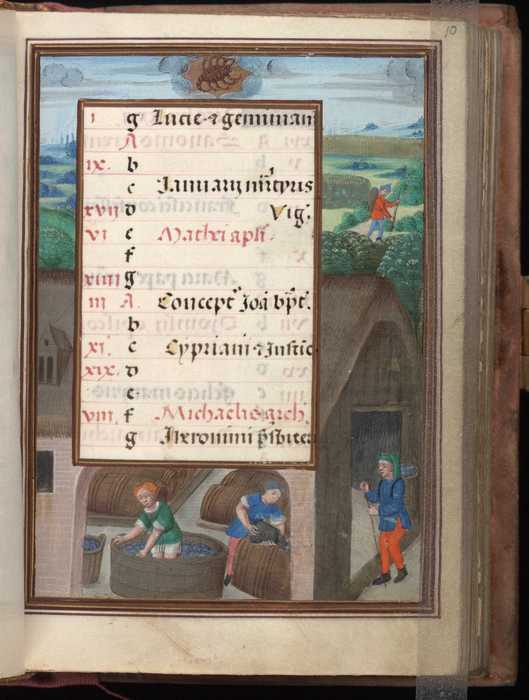 10
i g Lucie ⁊ geminiani
A
ix. b
c Januarij mr̄is
xvii d Vig.
vi e Mathei apľi.
f
xiiii g
iii A. Concept' Joā bp̄t.
b
xi. c Cypriani ⁊ Justic
xix. d
e
viii. f Michaelis arch.
g Iheronimi p̄sbiter